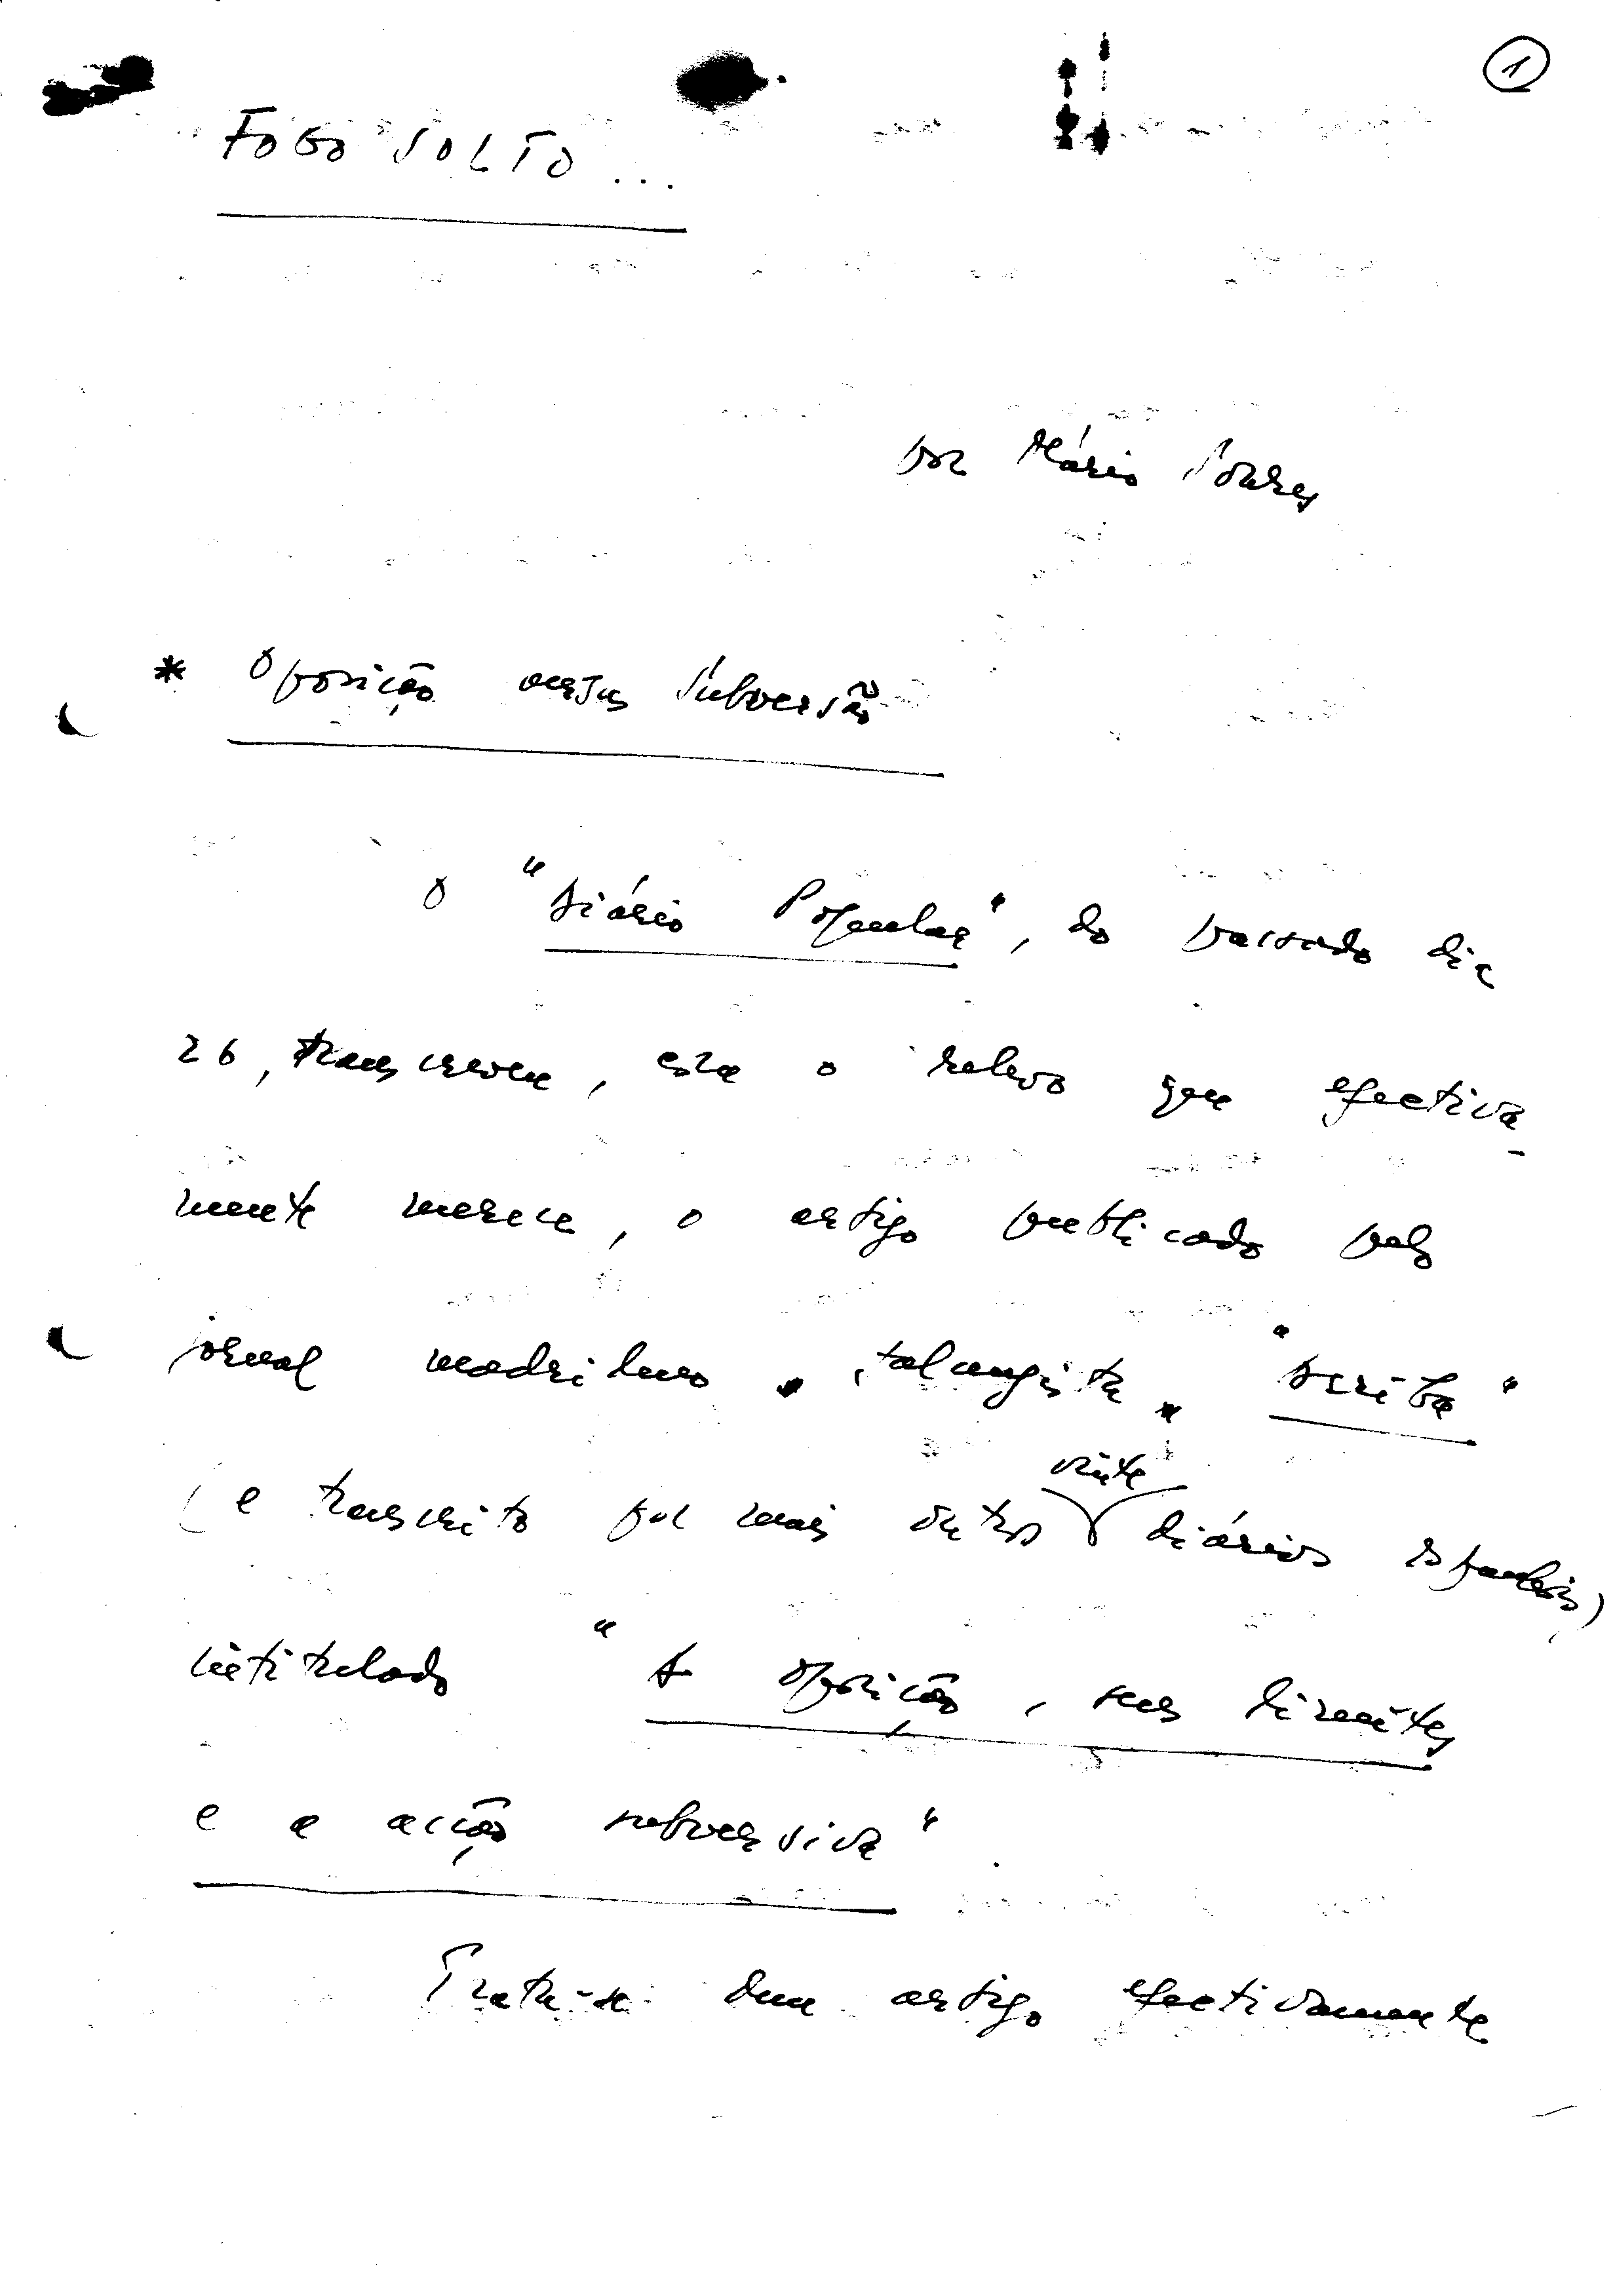 1
FOGO SOLTO...
por Mário Soares
* Oposição versus Subversão
O "Diário Popular", do passado dia
26, transcreveu, com o relevo que efectiva-
mente merece, o artigo publicado pelo
jornal madrileno, falangista, "Arriba"
(e transcrito por mais outros vinte diários espanhóis)
intitulado "A oposição, seus limites
e a acção subversiva".
Trata-se dum artigo efectivamente